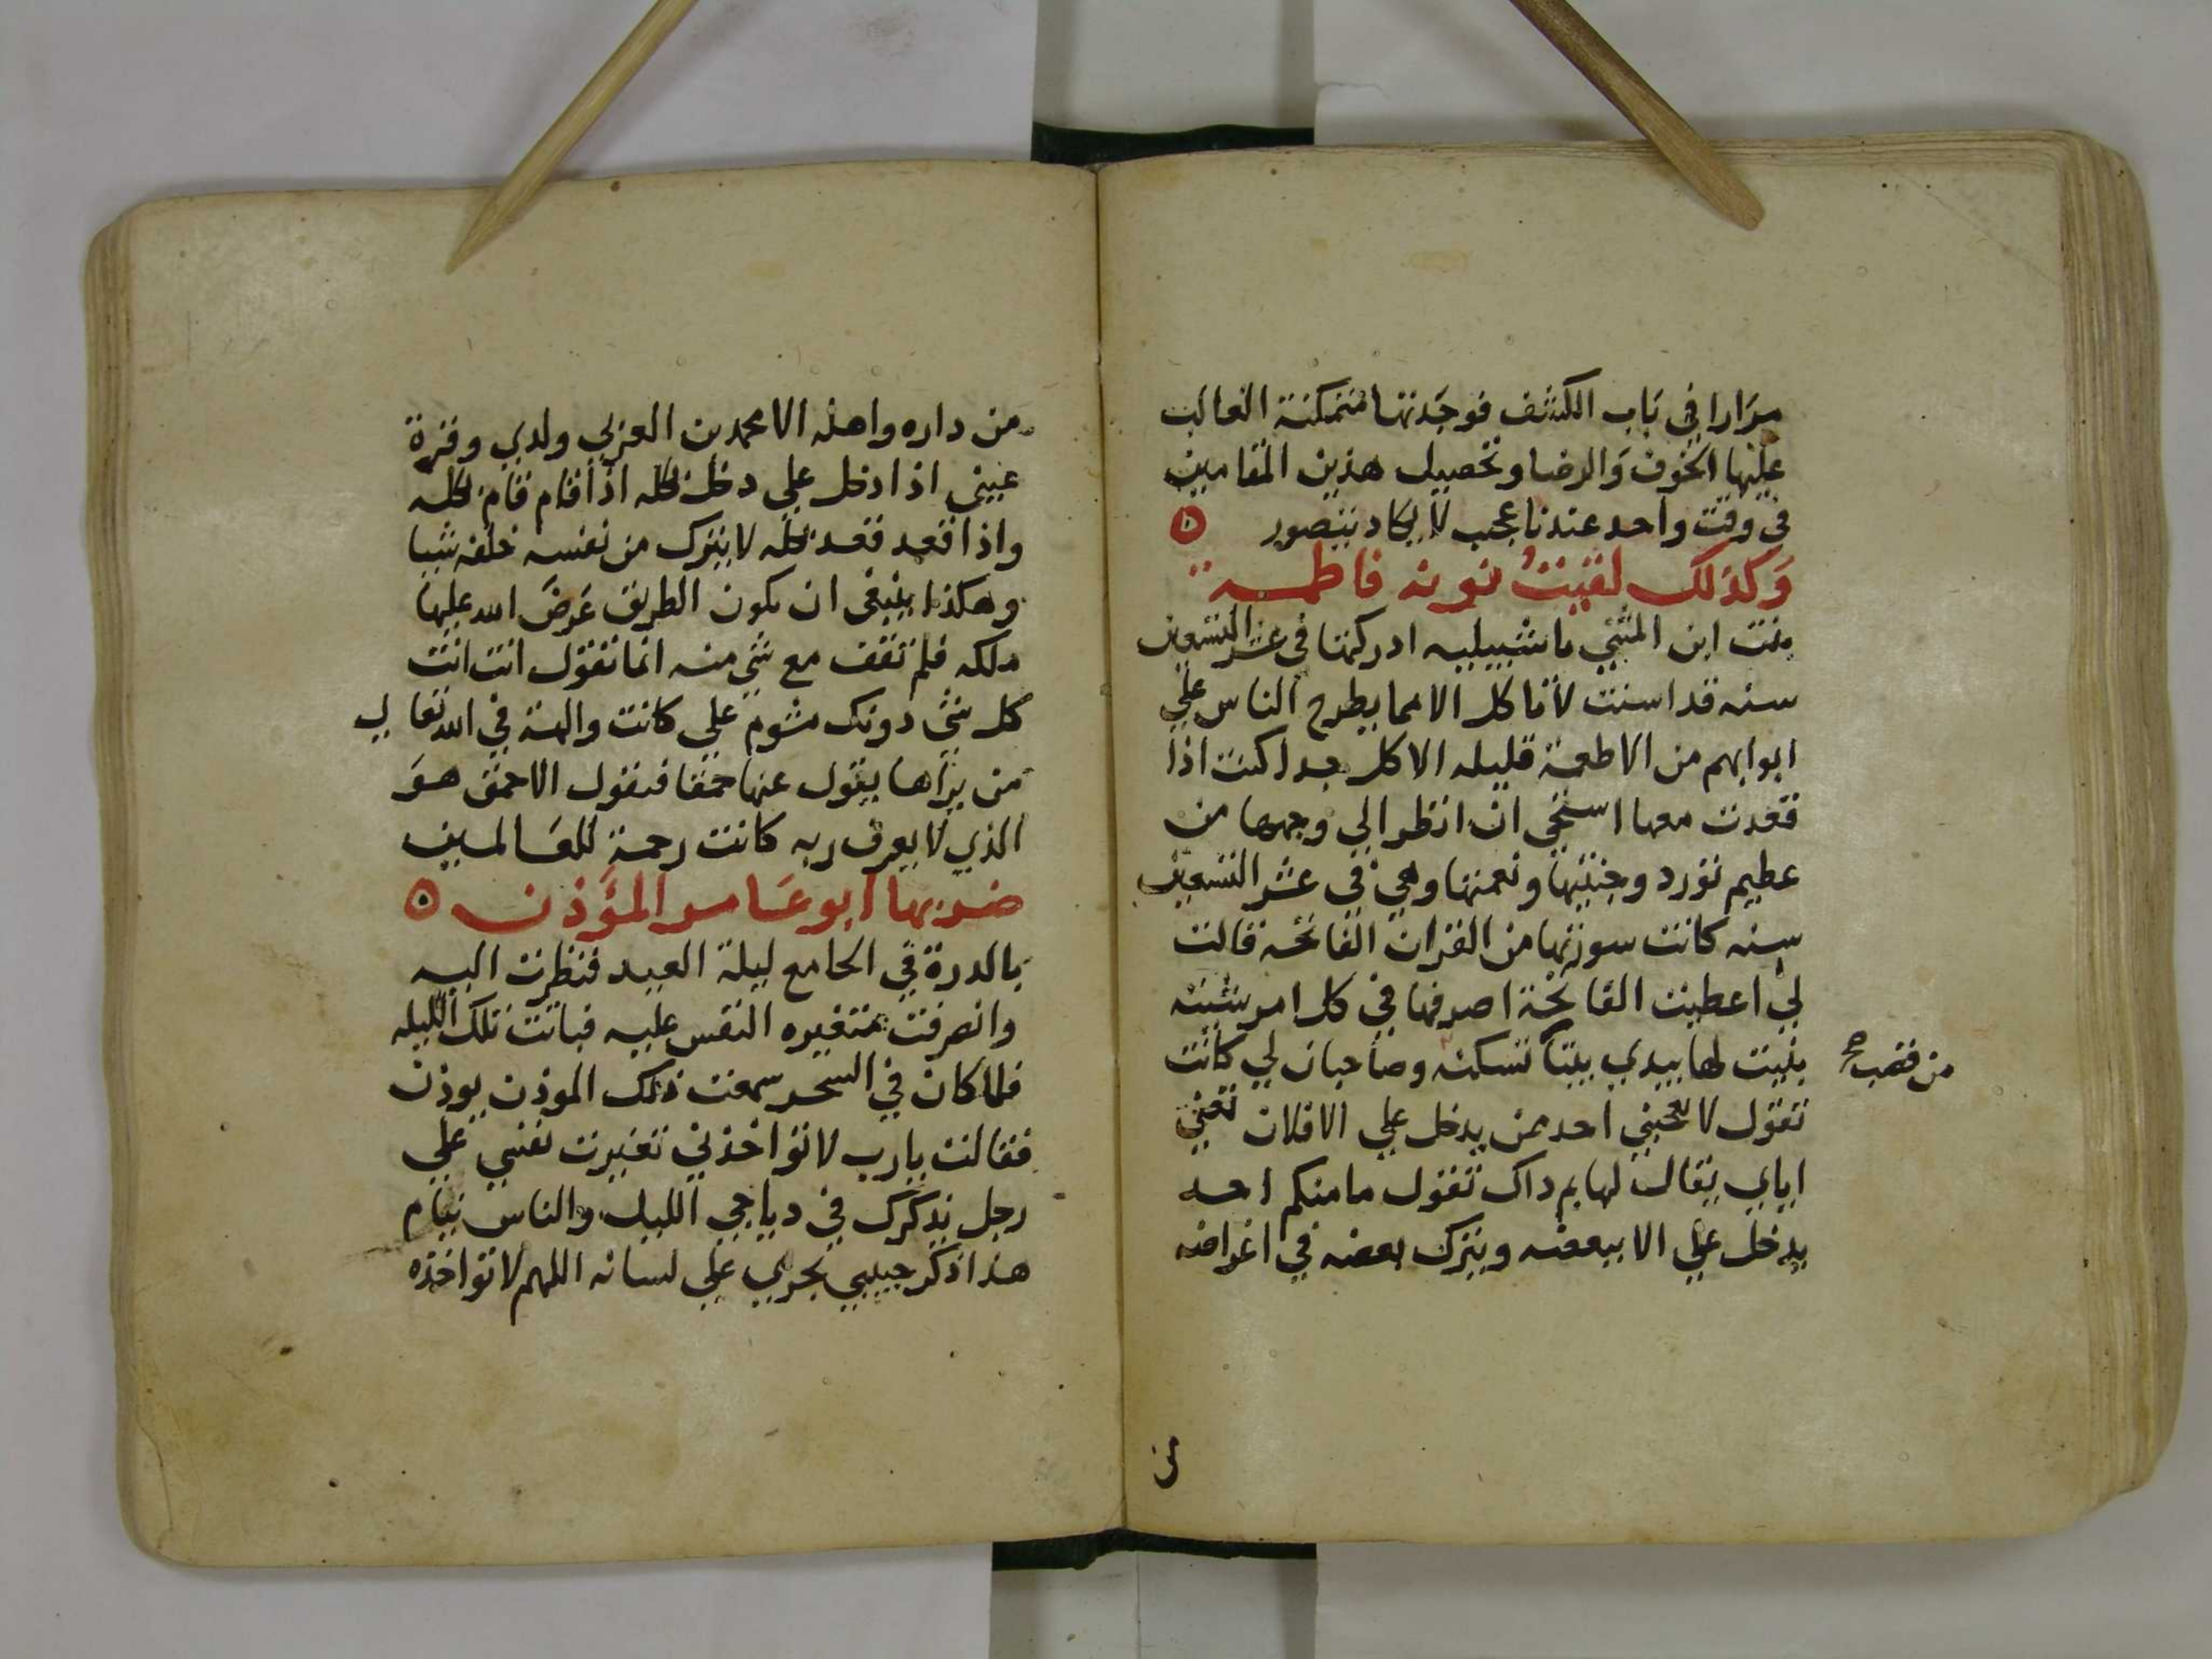 مرارا في باب الكشف فوجدتها متمكنة الغالب
عليها الخوف والرضا وتحصيل هذين المقامين
في وقت واحد عندنا عجب لا يكاد يتصور ه
وكذلك لقيت نونه فاطمه
بنت ابن المثني باشبيليه ادركتها في عشر التسعين
سنه قد اسنت لا تاكل الا مما يطرح الناس علي
ابوابهم من الاطعمة قليله الاكل جدا كنت اذا
قعدت معها استحي ان انظر الي وجهها من
عظيم تورد وجنتيها ونعمتها وهي في عشر التسعين
سنه كانت سورتها من القران الفاتحه قالت
لي اعطيت الفاتحة اصرفها في كل امر شيته
بنيت لها بيدي بيتا تسكنه وصاحبان لي كانت
من قصب صح
تقول لا يعجبني احد ممن يدخل علي الا فلان تعني
اياي يقال لها بم داك تقول ما منكم احد
يدخل علي الا ببعضه ويترك بعضه في اغراضه
من
من داره واهله الا محمد بن العربي ولدي وقرة
عيني اذا دخل علي دخل بكله اذا قام قام بكله
واذا قعد قعد بكله لا يترك من نفسه خلفه شيا
وهكذا ينبغي ان يكون الطريق عرض الله عليها
ملكه فلم تقف مع شي منه انما تقول انت انت
كل شي دونك مشوم علي كانت والهة في الله تعالي
من يراها يقول عنها حمقا فتقول الاحمق هو
الذي لا يعرف ربه كانت رحمة للعالمين
ضربها ابو عامر المؤذن ه
بالدرة في الجامع ليلة العيد فنظرت اليه
وانصرفت متغيره النفس عليه فباتت تلك الليله
فلما كان في السحر سمعت ذلك الموذن يوذن
فقالت يا رب لا تواخذني تغيرت نفسي علي
رجل يذكرك في دياجي الليل والناس نيام
هذا ذكر حبيبي يجري علي لسانه اللهم لا تواخذه